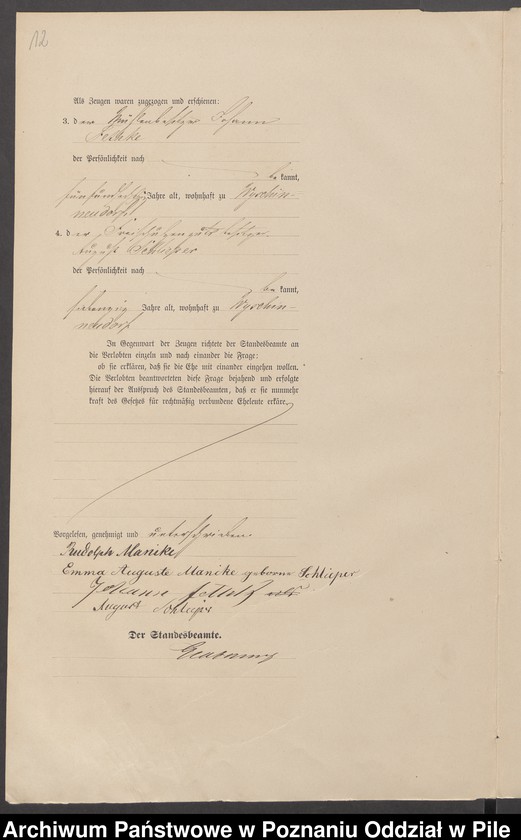 12
Als Zeugen waren zugezogen und erschienen:
3. der Johann
der Persönlichkeit nach
bekannt,
Jahre alt, wohnhaft zu Wyschin-
neudorf
4. der
August Schlieper
der Persönlichkeit nach
bekannt,
siebenzig Jahre alt, wohnhaft zu Wyschin-
neudorf
In Gegenwart der Zeugen richtete der Standesbeamte an
die Verlobten einzeln und nach einander die Frage:
ob sie erklären, daß sie die Ehe mit einander eingehen wollen.
Die Verlobten beantworteten diese Frage bejahend und erfolgte
hierauf der Ausspruch des Standesbeamten, daß er sie nunmehr
kraft des Gesetzes für rechtmäßig verbundene Eheleute erkläre.
Vorgelesen, genehmigt und unterschrieben
Rudolph Manike
Emma Auguste Manike geborne Schlieper
Johann
August Schlieper
Der Standesbeamte.
Archiwum Państwowe w Poznaniu Oddział w Pile